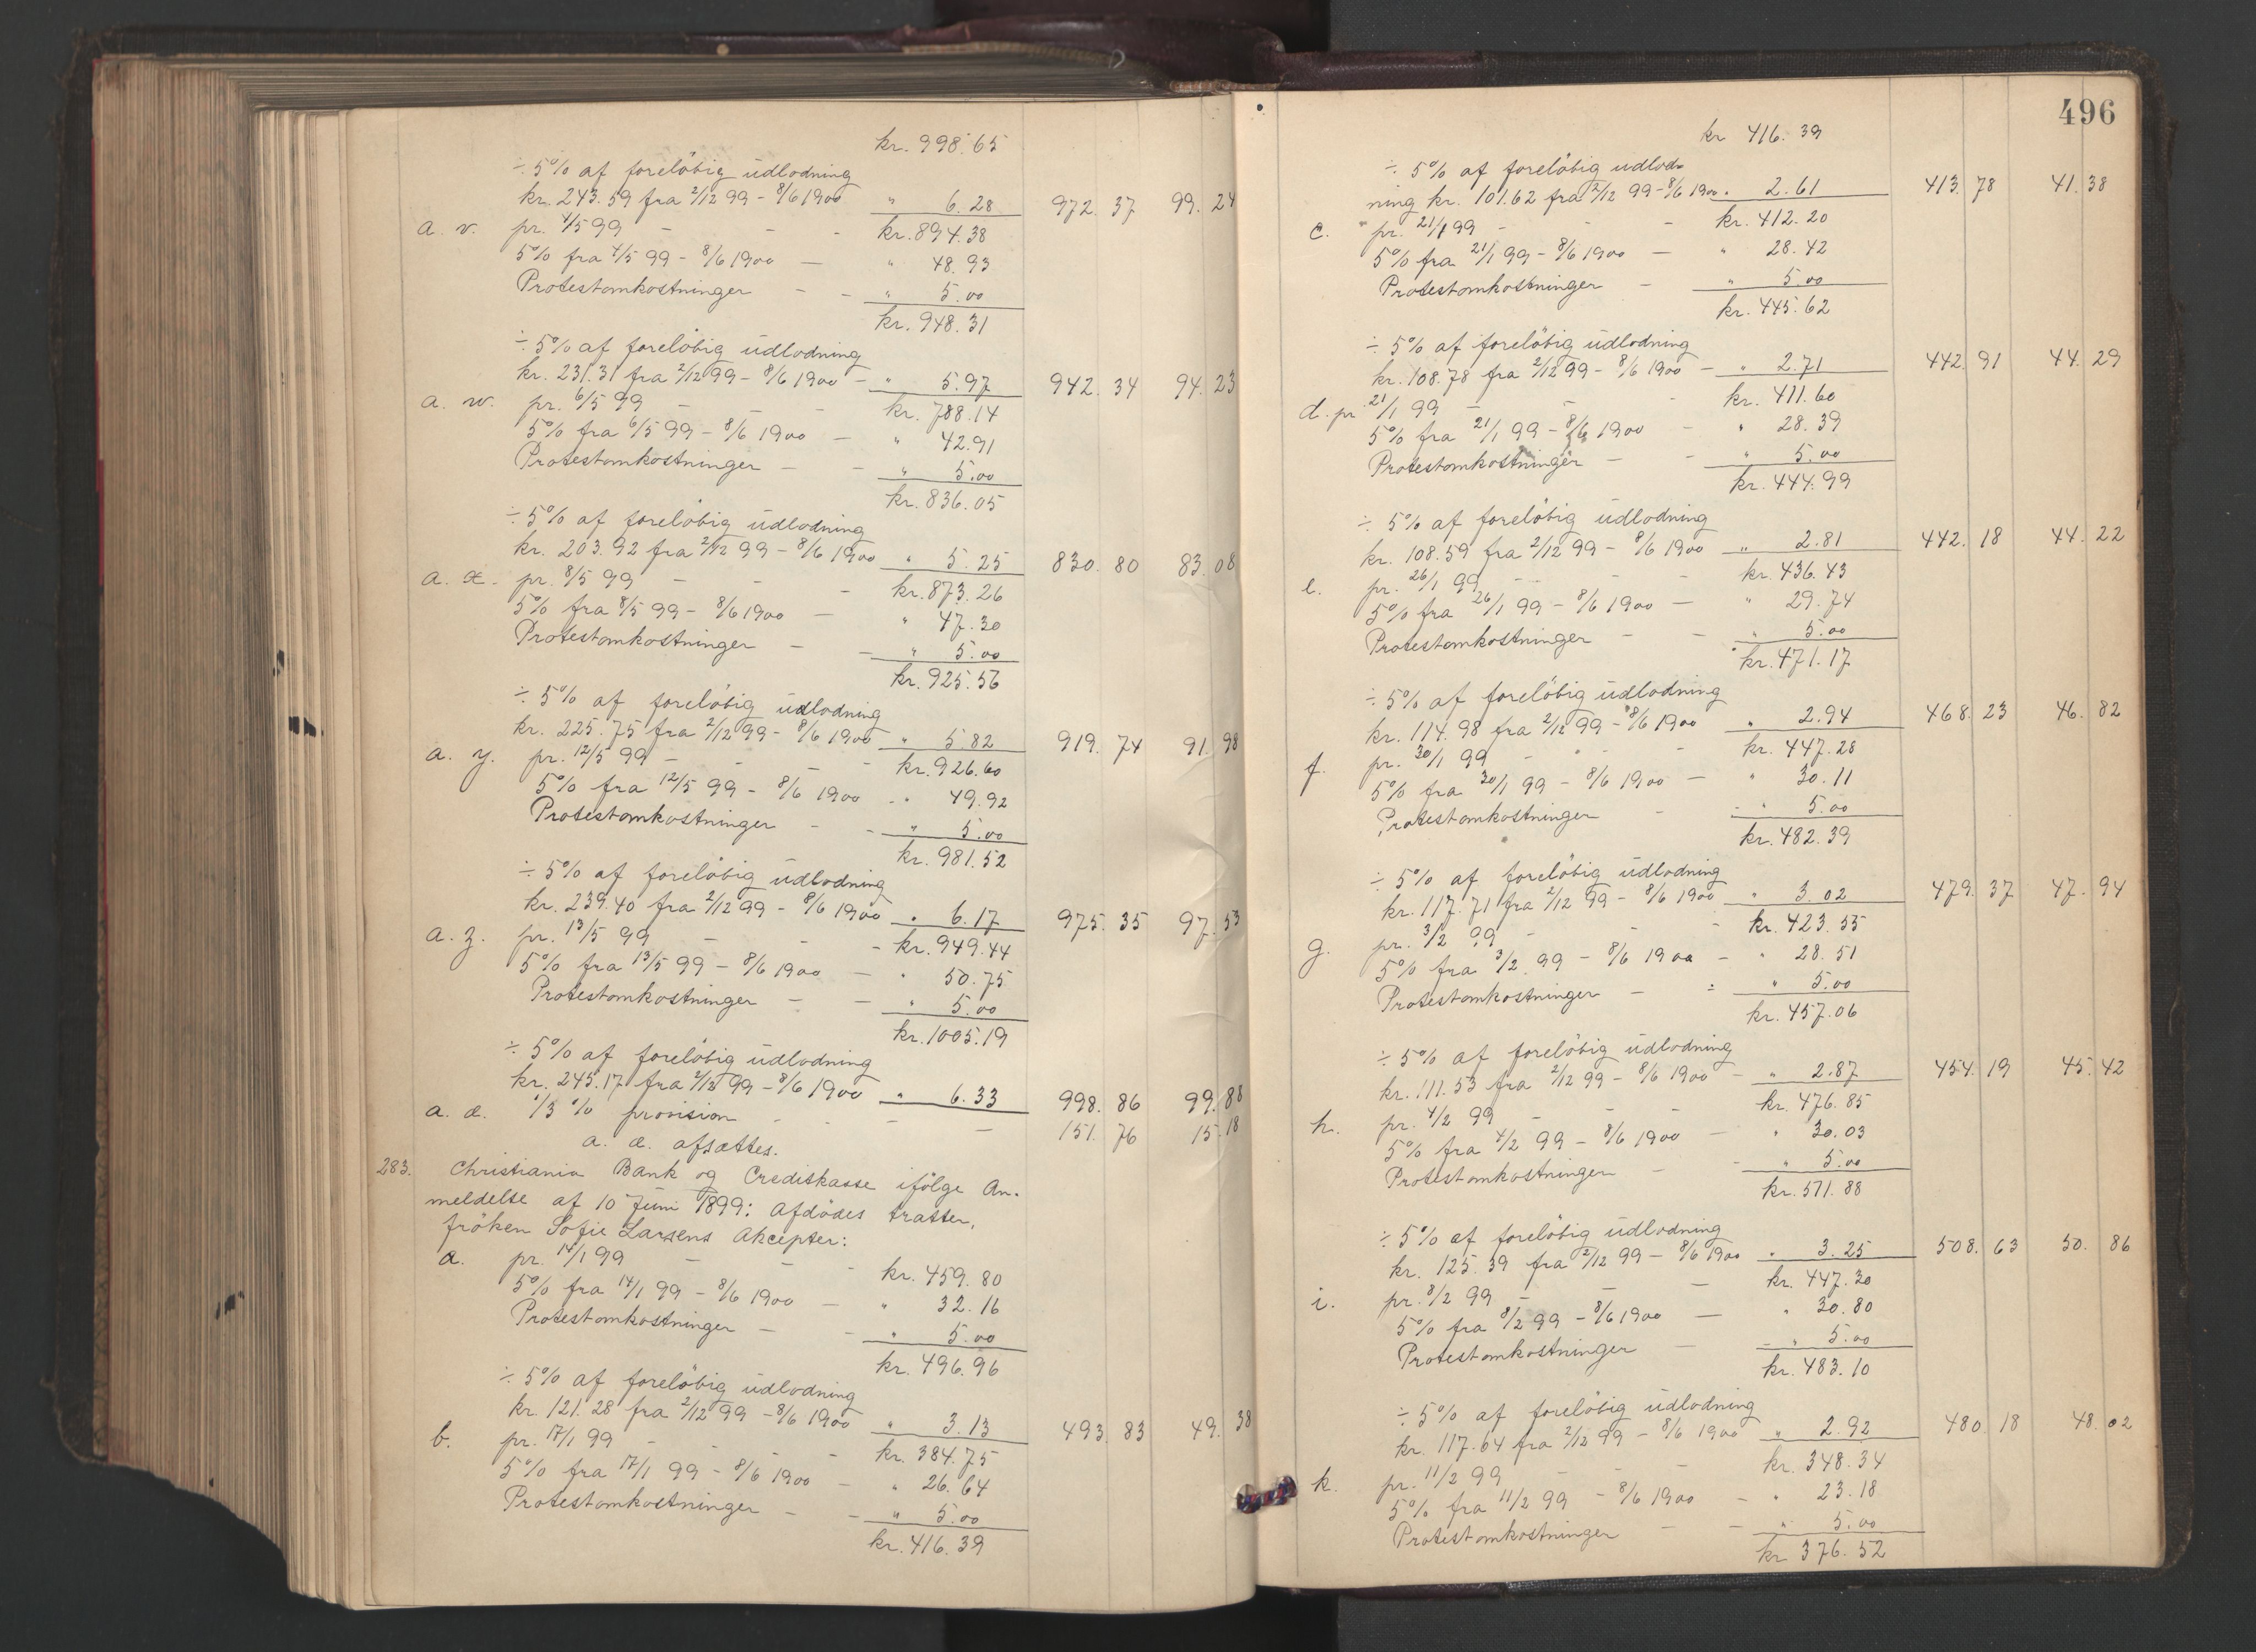 kr. 998.65
÷ 5% af foreløbig udlodning
kr. 243.59 fra 2/12 99 - 8/6 1900 " 6.28 972.37 99.24
a. v. pr. 4/5 99 - - - kr. 894.38
5% fra 4/5 99 - 8/6 1900 — " 48.93
Protestomkostninger - - " 5.00
kr. 948.31
÷ 5% af foreløbig udlodning
kr. 231.31 fra 2/12 99 - 8/6 1900 - " 5.97 942.34 94.23
a. w. pr. 6/5 99 - - - kr. 788.14
5% fra 6/5 99 - 8/6 1900 — " 42.91
Protestomkostninger - - " 5.00
kr. 836.05
÷ 5% af foreløbig udlodning
kr. 203.92 fra 2/12 99 - 8/6 1900 " 5.25 830.80 83.08
a. x. pr. 8/5 99 - - - kr. 873.26
5% fra 8/5 99 - 8/6 1900 — " 47.30
Protestomkostninger - - " 5.00
kr. 925.56
÷ 5% af foreløbig udlodning
kr. 225.75 fra 2/12 99 - 8/6 1900 " 5.82 919.74 91.98
a. y. pr. 12/5 99 - - - kr. 926.60
5% fra 12/5 99 - 8/6 1900 - " 49.92
Protestomkostninger - - " 5.00
kr. 981.52
÷ 5% af foreløbig udlodning
kr. 239.40 fra 2/12 99 - 8/6 1900 " 6.17 975.35 97.53
a. z. pr. 13/5 99 - - - kr. 949.44
5% fra 13/5 99 - 8/6 1900 — " 50.75
Protestomkostninger - - " 5.00
kr. 1005.19
÷ 5% af foreløbig udlodning
kr. 245.17 fra 2/12 99 - 8/6 1900 " 6.33 998.86 99.88
a. æ. 1/3 % provision - - - - 151.76 15.18
a. æ. afsættes.
283. Christiania Bank og Creditkasse ifølge An-
meldelse af 10 Juni 1899: Afdødes tratter,
frøken Sofie Larsens Akcepter:
a. pr. 14/1 99 - - - kr. 459.80
5% fra 14/1 99 - 8/6 1900 — " 32.16
Protestomkostninger - - " 5.00
kr. 496.96
÷ 5% af foreløbig udlodning
kr. 121.28 fra 2/12 99 - 8/6 1900 " 3.13 493.83 49.38
b. pr. 17/1 99 - - - kr. 384.75
5% fra 17/1 99 - 8/6 1900 — " 26.64
Protestomkostninger - - " 5.00
kr. 416.39
496
kr 416.39
÷ 5% af foreløbig udlod-
ning kr. 101.62 fra 2/12 99 - 8/6 1900 " 2.61 413.78 41.38
c. pr. 21/1 99 - - kr. 412.20
5% fra 21/1 99 - 8/6 1900 — " 28.42
Protestomkostninger - " 5.00
kr. 445.62
÷ 5% af foreløbig udlodning
kr. 108.78 fra 2/12 99 - 8/6 1900 - " 2.71 442.91 44.29
d. pr. 21/1 99 - - - kr. 411.60
5% fra 21/1 99 - 8/6 1900 - " 28.39
Protestomkostninger - - " 5.00
kr. 444.99
÷ 5% af foreløbig udlodning
kr. 108.59 fra 2/12 99 - 8/6 1900 - " 2.81 442.18 44.22
e. pr. 26/1 99 - - - kr. 436.43
5% fra 26/1 99 - 8/6 1900 — " 29.74
Protestomkostninger - - " 5.00
kr. 471.17
÷ 5% af foreløbig udlodning
kr. 114.98 fra 2/12 99 - 8/6 1900 " 2.94 468.23 46.82
f. pr. 30/1 99 - - - kr. 447.28
5% fra 30/1 99 - 8/6 1900 — " 30.11
Protestomkostninger - - " 5.00
kr. 482.39
÷ 5% af foreløbig udlodning
kr. 117.71 fra 2/12 99 - 8/6 1900 - " 3.02 479.37 47.94
g. pr. 3/2 99 - - - kr. 423.55
5% fra 3/2 99 - 8/6 1900 - " 28.51
Protestomkostninger - - " 5.00
kr. 457.06
÷ 5% af foreløbig udlodning
kr. 111.53 fra 2/12 99 - 8/6 1900 - " 2.87 454.19 45.42
h. pr. 4/2 99 - - - kr. 476.85
5% fra 4/2 99 - 8/6 1900 — " 30.03
Protestomkostninger - - " 5.00
kr. 511.88
÷ 5% af foreløbig udlodning
kr. 125.39 fra 2/12 99 - 8/6 1900 " 3.25 508.63 50.86
i. pr. 8/2 99 - - kr. 447.30
5% fra 8/2 99 - 8/6 1900 — " 30.80
Protestomkostninger - - " 5.00
kr. 483.10
÷ 5% af foreløbig udlodning
kr. 117.64 fra 2/12 99 - 8/6 1900 " 2.92 480.18 48.02
k. pr. 11/2 99 - - - kr. 348.34
5% fra 11/2 99 - 8/6 1900 - " 23.18
Protestomkostninger - - " 5.00
kr 376.52